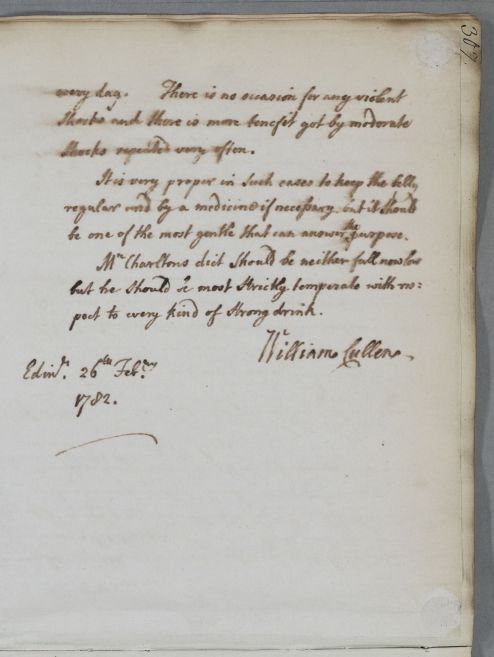 387.
every day. There is no occasion for any violent
Shocks and there is more benefit got by moderate
Shocks repeated very often.
It is very proper in Such cases to keep the belly
regular and by a medicine if necessary but it Should
be one of the most gentle that can answer the purpose.
Mr Charltons diet Should be neither full nor low
but he Should be most Strictly temperate with res:
pect to every kind of Strong drink.
William Cullen
Edinr. 26th Febry
1782.